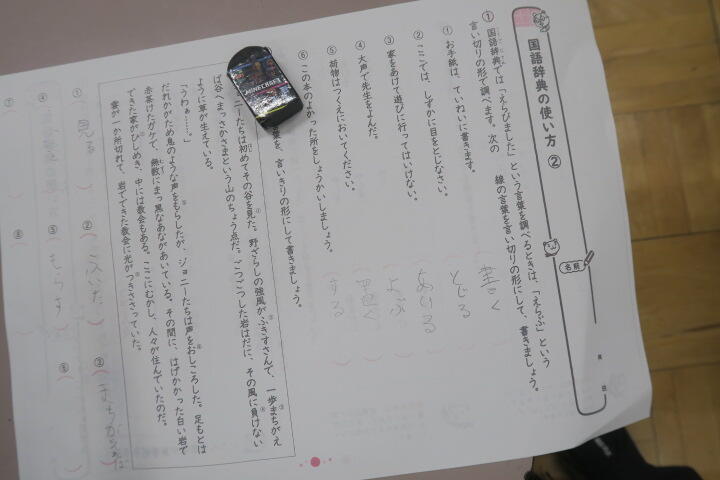 国語辞典の使い方 ②
名前
月
日
① 国語辞典では「えらびました」という言葉を調べるときは、「えらぶ」という
言い切りの形で調べます。次の 線の言葉を言い切りの形にして、書きましょう。
① お手紙は、ていねいに書きます。
書く
② ここでは、しずかに目をとじなさい。
とじる
③ 家をあけて遊びに行ってはいけない。
あける
④ 大声で先生をよんだ。
よぶ
⑤ 荷物はつくえにおいてください。
⑥ この本のよかった所をしょうかいしましょう。
する
葉を、言いきりの形にして書きましょう。
ニーたちは初めてその谷を見た。野ざらしの強風がふきすさんで、一歩まちがえ
ば谷へまっさかさまという山のちょう点だ。ごつごつした岩はだに、その風に負けない
ように草が生えている。
「うわぁ……。」
だれかがため息のような声をもらしたが、ジョニーたちは声をおしころした。足もとは
赤茶けたガケで、無数にまっ黒なあながあいている。その間に、はげかかった白い岩で
できた家がひしめき、中には教会もある。ここにむかし、人々が住んでいたのだ。
雲が一か所切れて、岩でできた教会に光がつきささっていた。
① 見る
②
③
④
⑤ もらす
⑥
⑦
⑧
MINECRAFT